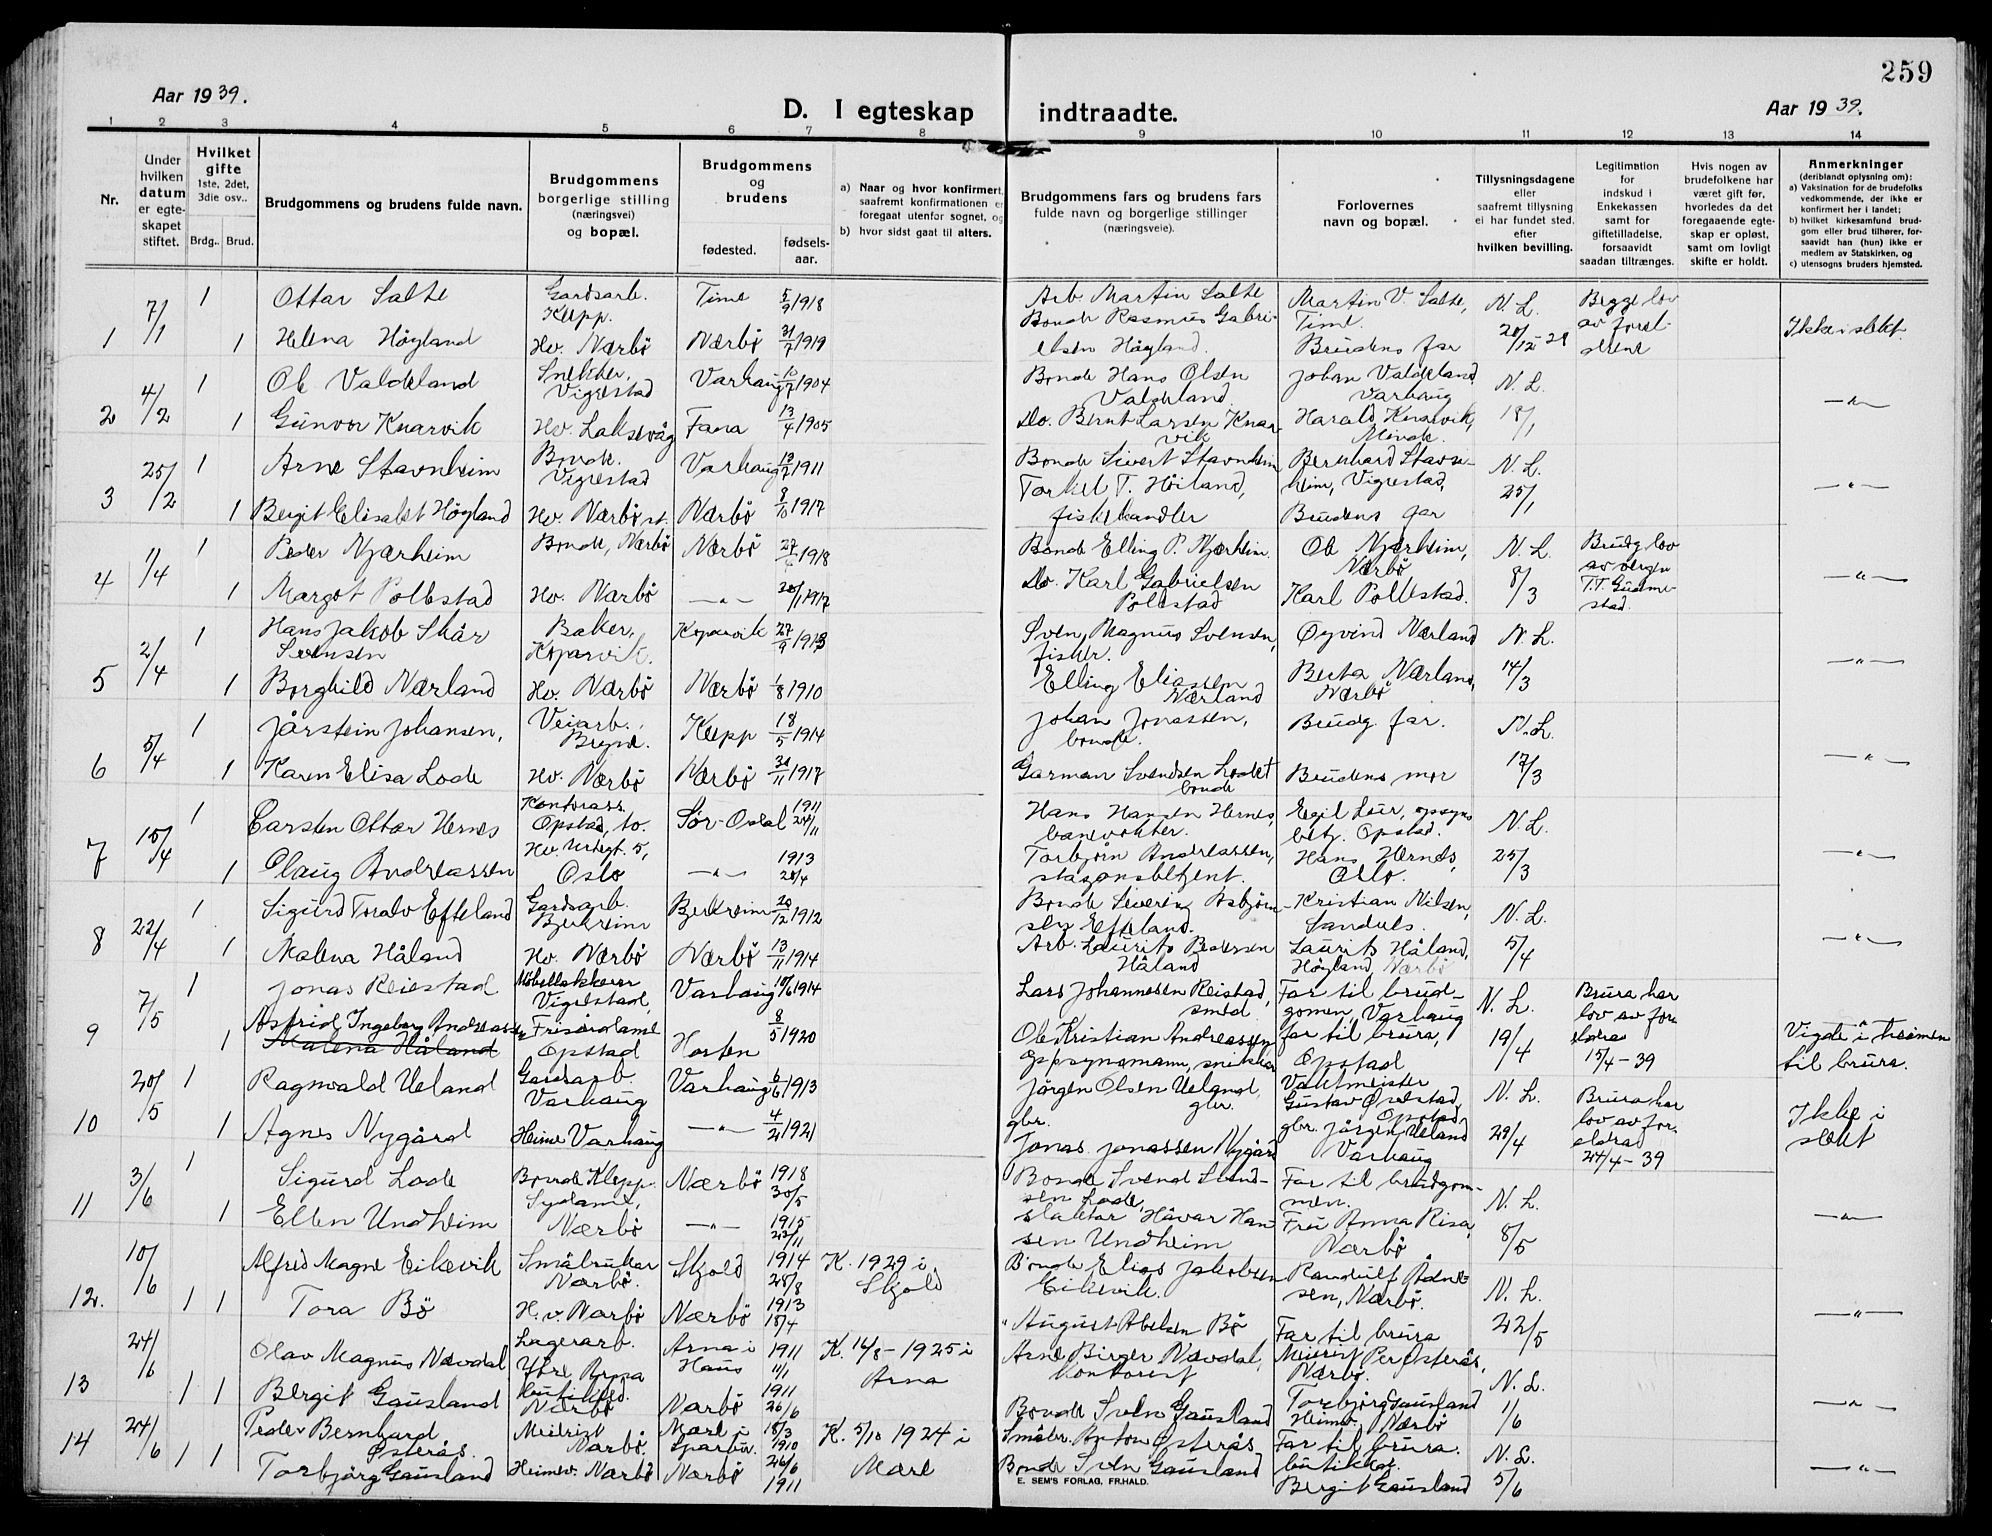 259
Aar 1939.
D. I egteskap indtraadte.
Aar 1939.
1 2 3 4 5 6 7 8 9 10 11 12 13 14
Nr.
Under hvilken datum er egte-skapet stiftet.
Hvilket gifte 1ste, 2det, 3die osv..
Brdg.. Brud.
Brudgommens og brudens fulde navn.
Brudgommens borgerlige stilling (næringsvei) og bopæl.
Brudgommens og brudens
fødested. fødsels-aar.
a) Naar og hvor konfirmert, saafremt konfirmationen er foregaat utenfor sognet, og
b) hvor sidst gaat til alters.
Brudgommens fars og brudens fars fulde navn og borgerlige stillinger (næringsveie).
Forlovernes navn og bopæl.
Tillysningsdagene eller saafremt tillysning ei har fundet sted, efter hvilken bevilling.
Legitimation for indskud i Enkekassen samt for giftetilladelse, forsaavidt saadan tiltrænges.
Hvis nogen av brudefolkene har været gift før, hvorledes da det foregaaende egte-skap er opløst, samt om lovligt skifte er holdt.
Anmerkninger (deriblandt oplysning om):
a) Vaksination for de brudefolks vedkommende, der ikke er konfirmert her i landet;
b) hvilket kirkesamfund brud-gom eller brud tilhører, for-saavidt han (hun) ikke er medlem av Statskirken, og
c) utensogns bruders hjemsted.
1 7/1 1 Ottar Salte Gardsarb. Klepp. Time 5/9 1918 Arb. Martin Salte Martin V. Salte, Time. N. L. 20/12-29 Begge lov av forel-drene Ikke i slekt.
1 Helena Høyland Hv. Nærbø Nærbø 31/7 1919 Bonde Rasmus Gabri-elsen Høyland. Brudens far
2 4/2 1 Ole Valdeland Snekker, Vigrestad Varhaug 1904 Bonde Hans Olsen Valdeland. Johan Valdeland Varhaug N. L. 18/1 —"—
1 Gunvor Knarvik Hv. Laksevåg Fana 13/4 1905 Do. Bernt Larsen Knar-vik Harald Knarvik,
3 25/2 1 Arne Stavnheim Bonde. Vigrestad Varhaug 1911 Bonde Sivert Stavnheim Bernhard Stavn-heim, Vigrestad, N. L. 25/1 —"—
1 Bergit Elisabet Høyland Hv. Nærbø st. Nærbø 8/10 1917 Torkel T. Høiland, fiskehandler Brudens far
4 11/4 1 Peder Njærheim Bonde, Nærbø Nærbø 1918 Bonde Elling P. Njærheim. Ole Njærheim, Nærbø N. L. 8/3 Brudg lov av vergen T.T. Gudme-stad. —"—
1 Margot Pollestad Hv. Nærbø —"— 20/1 1917 Do. Karl Gabrielsen Pollestad Karl Pollestad.
5 2/4 1 Hans Jakob Skår Svensen Baker, Kopervik. Kopervik 27/9 1913 Sven Magnus Svensen, fisker. Øyvind Nærland N. L. 14/3 —"—
1 Borghild Nærland Hv. Nærbø Nærbø 1/8 1910 Elling Eliassen Nærland Berta Nærland, Nærbø
6 5/4 1 Jårstein Johansen, Veiarb., Bryne. Klepp 18/5 1914 Johan Jonassen, bonde. Brudg. far. N. L. 17/3 —"—
1 Karen Elisa Lode Hv. Nærbø Nærbø 1917 Garman Svendsen Lode† bonde Brudens mor
7 15/4 1 Carsten Ottar Hernes Kontorass. Opstad, to. Sør-Odal 1911 24/11 Hans Hansen Hernes, banevokter. Egil Leir, opsyns betj. Opstad. N. L. 25/3 —"—
1 Olaug Andreassen Hv. Urtegt. 5, Oslo —"— 1913 28/4 Torbjørn Andreassen, stasjonsbetjent. Hans Hernes, Oslo.
8 22/4 1 Sigurd Toralv Efteland Gardsarb. Bjerkreim Bjerkreim 20/12 1912 Bonde Severin Asbjørn-sen Efteland. Kristian Nilsen, N. L. 5/4 —"—
1 Malena Håland Hv. Nærbø Nærbø 13/11 1914 Arb. Laurits Pedersen Håland Laurits Håland, Høyland, Nærbø
9 7/5 1 Jonas Reiestad Møbelsnekker Vigrestad, Varhaug 10/6 1914 Lars Johannesen Reistad, smed. Far til brud-gomen, Varhaug N. L. 19/4 Brura har lov av for-eldra 15/4-39 —"— Vigde i heimen til brura.
1 Astrid Ingeborg Andreassen Malena Håland Frisørdame Opstad Horten 8/5 1920 Ole Kristian Andreassen Oppsynsmann, snikkar far til brura, Opstad
10 20/5 1 Ragnvald Ueland Gardsarb. Varhaug Varhaug 6/6 1913 Jørgen Olsen Ueland gbr. Vaktmeister Gustav Opstad N. L. 29/4 Brura har lov av for-eldra 24/4-39 Ikke i slekt
1 Agnes Nygård Heime Varhaug —"— 4/2 1921 gbr. Jonas Jonassen Nygård gbr. Jørgen Ueland Varhaug
11 3/6 1 Sigurd Lode Bonde Klepp. Nærbø 1918 30/5 Bonde Svend Svend-sen Lode, Far til brudgom-men. N. L. 8/5 —"—
1 Ellen Undheim Sydame, Nærbø —"— 1915 Slaktar Håvar Han-sen Undheim Frü Anna Risa, Nærbø
12. 10/6 1 1 Alfred Magne Eikevik Småbrukar Nærbø. Skjold 1914 28/8 K. 1929 i Skjold Bonde Elias Jakobsen Eikevik. Randulf Ådne-sen, Nærbø. N. L. 22/5 —"—
Tora Bø H. v. Nærbø Nærbø 1913 18/4 " August Abelsen Bø Far til brura
13 24/6 1 1 Olav Magnus Nævdal Lagerarb. Ytre Arna Arna i Haus 1911 11/1 K. 16/8-1925 i Arna Arne Birger Nævdal, kontorist Meierist Per Østerås, Nærbø. N. L. 1/6 —"—
Bergit Gausland Nærbø Nærbø 1911 26/6 Bonde Sven Gausland Torbjørg Gausland Heimv. Nærbø
14 24/6 1 1 Peder Bernhard Østerås. Meierist Nærbø. Mære i Sparbu. 18/3 1910 K. 5/10 1924 i Mære Småbr. Anton Østerås Far til brura. N. L. 5/6 —"—
Torbjørg Gausland Heimev. Nærbø Nærbø 26/6 1911 Bonde Sven Gausland Bergit Gausland
E. SEM'S FORLAG, FR.HALD.